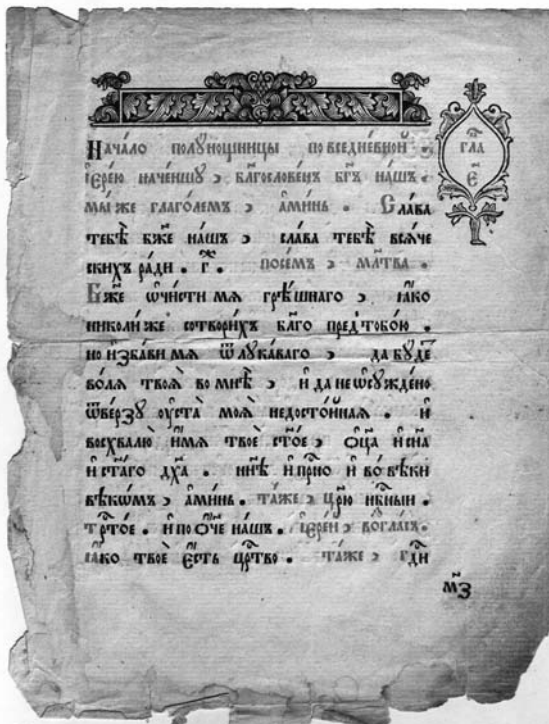 Нача́ло полу́нощницы повседне́вной .
і҆ере́ю наче́ншу , бл҃гослове́нъ бг҃ъ на́шъ .
мы́ же глаго́лемъ , а҆ми́нь . Сла́ва
тебѣ̀ бж҃е на́шъ , сла́ва тебѣ̀ всѧ́че
скихъ ра́ди . г҃ . посе́мъ , мл҃тва .
Бж҃е ѡ҆чи́сти мѧ грѣ́шнаго , ꙗ҆́ко
николи́же сотвори́хъ бл҃го пред̾тобо́ю .
но и҆зба́ви мѧ ѿ лꙋка́ваго , да бꙋ́де
во́лѧ твоѧ̀ во мнѣ̀ , и҆ да не ѡ҆сꙋжде́но
ѿве́рзꙋ ᲂу҆ста̀ моѧ̀ недосто́йнаѧ . и҆
восхвалю̀ и҆́мѧ твоѐ ст҃о́е , ѻ҆ц҃а̀ и҆ сн҃а
и҆ ст҃а́го дх҃а . нн҃ѣ и҆ при҇но и҆ во́ вѣки
вѣко́мъ , а҆ми́нь . та́же , цр҃ю̀ нб҇ный .
тр҇то́е . и҆ по ѻ҆́ч҃е на́шъ . і҆ере́й , во́гласъ .
ꙗ҆́ко твоѐ є҆́сть ца҇рство . та́же , гд҇и
гла
є҃
м҃з